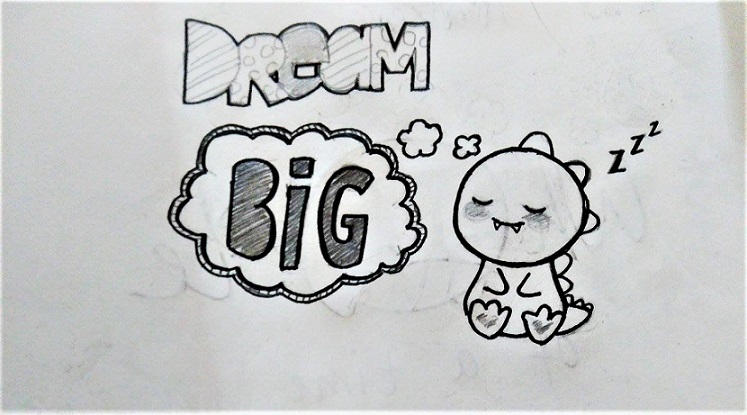 DREAM
BiG
z z z